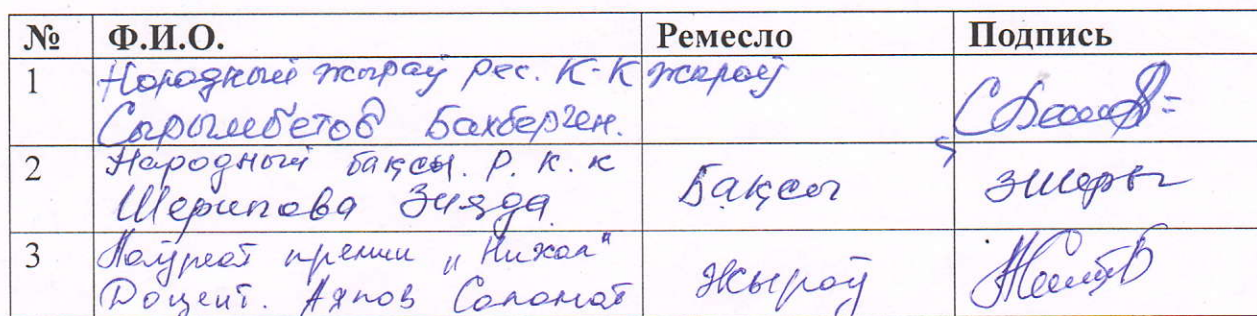 № Ф.И.О. Ремесло Подпись
1 Народный жырау рес. К-К жырау
Сарымбетов Бахберген.
2 Народный бақсы. Р. К. К
Шерипова Зияда Бақсы
3 Лауреат премии „Нихол"
Доцент. Аяпов Саламат жырау